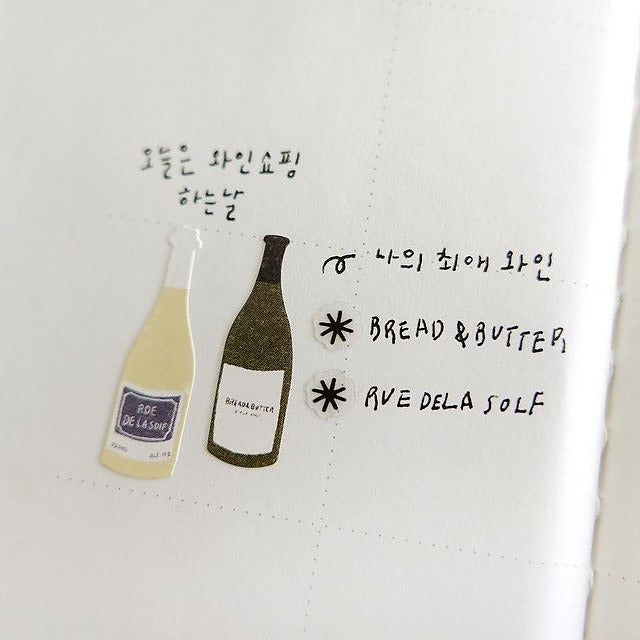 오늘은 와인쇼핑
하는날
나의 최애 와인
BREAD & BUTTER,
RUE DELA SOLF
ROE
DE LA SOIF
BREAD & BUTTER